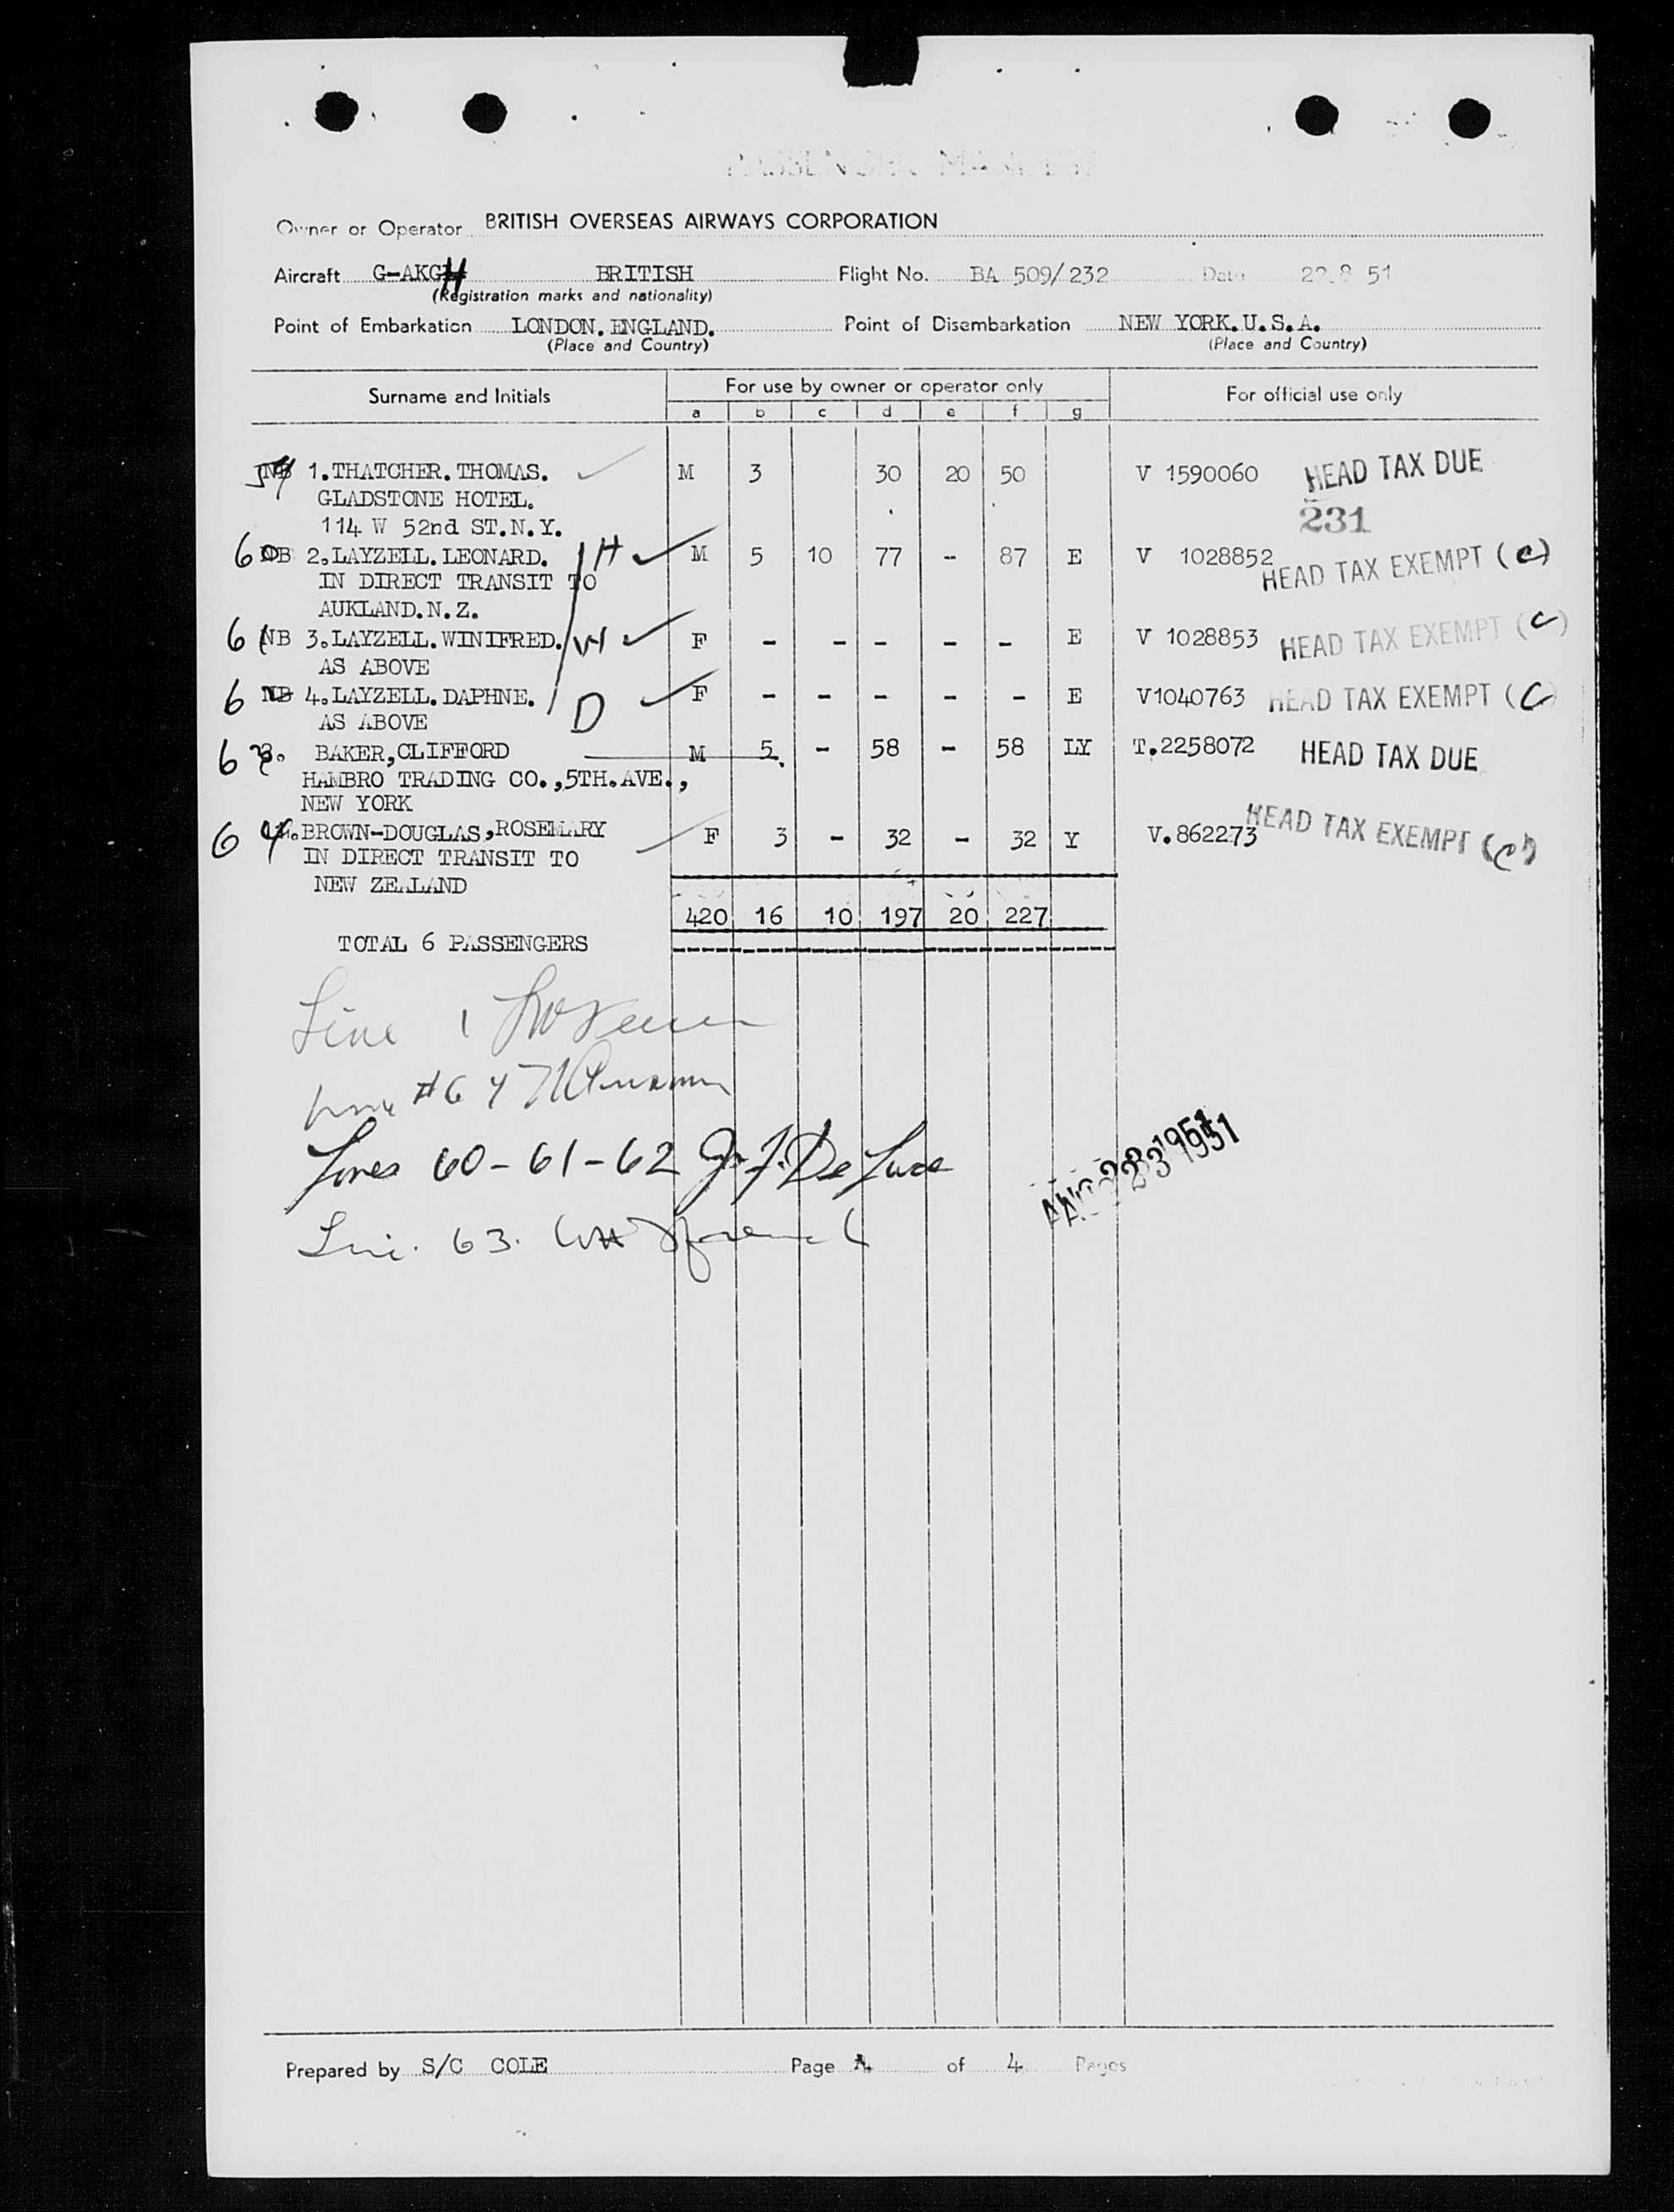 PASSENGER MANIFEST
Owner or Operator BRITISH OVERSEAS AIRWAYS CORPORATION
Aircraft G-AKGH BRITISH Flight No. BA 509/232 Date 22 8 51
(Registration marks and nationality)
Point of Embarkation LONDON. ENGLAND. Point of Disembarkation NEW YORK. U.S.A.
(Place and Country) (Place and Country)
Surname and Initials For use by owner or operator only For official use only
a b c d e f g
1. THATCHER. THOMAS. M 3 30 20 50 V 1590060 HEAD TAX DUE
GLADSTONE HOTEL. 231
114 W 52nd ST. N.Y.
60 2. LAYZELL. LEONARD. H M 5 10 77 - 87 E V 1028852 HEAD TAX EXEMPT (C)
IN DIRECT TRANSIT TO
AUKLAND. N. Z.
61 NB 3. LAYZELL. WINIFRED. W F - - - - - E V 1028853 HEAD TAX EXEMPT (C)
AS ABOVE
6 4. LAYZELL. DAPHNE. D F - - - - - E V1040763 HEAD TAX EXEMPT (C)
AS ABOVE
6 3. BAKER, CLIFFORD M 5. - 58 - 58 LY T. 2258072 HEAD TAX DUE
HAMBRO TRADING CO., 5TH. AVE.,
NEW YORK
6 4. BROWN-DOUGLAS, ROSEMARY F 3 - 32 - 32 Y V. 862273 HEAD TAX EXEMPT (C)
IN DIRECT TRANSIT TO
NEW ZEALAND
420 16 10 197 20 227
TOTAL 6 PASSENGERS
Line 1
#64
Lines 60-61-62 J. F. De Luca
AUG 23 1951
63.
Prepared by S/C COLE Page 4 of 4 Pages